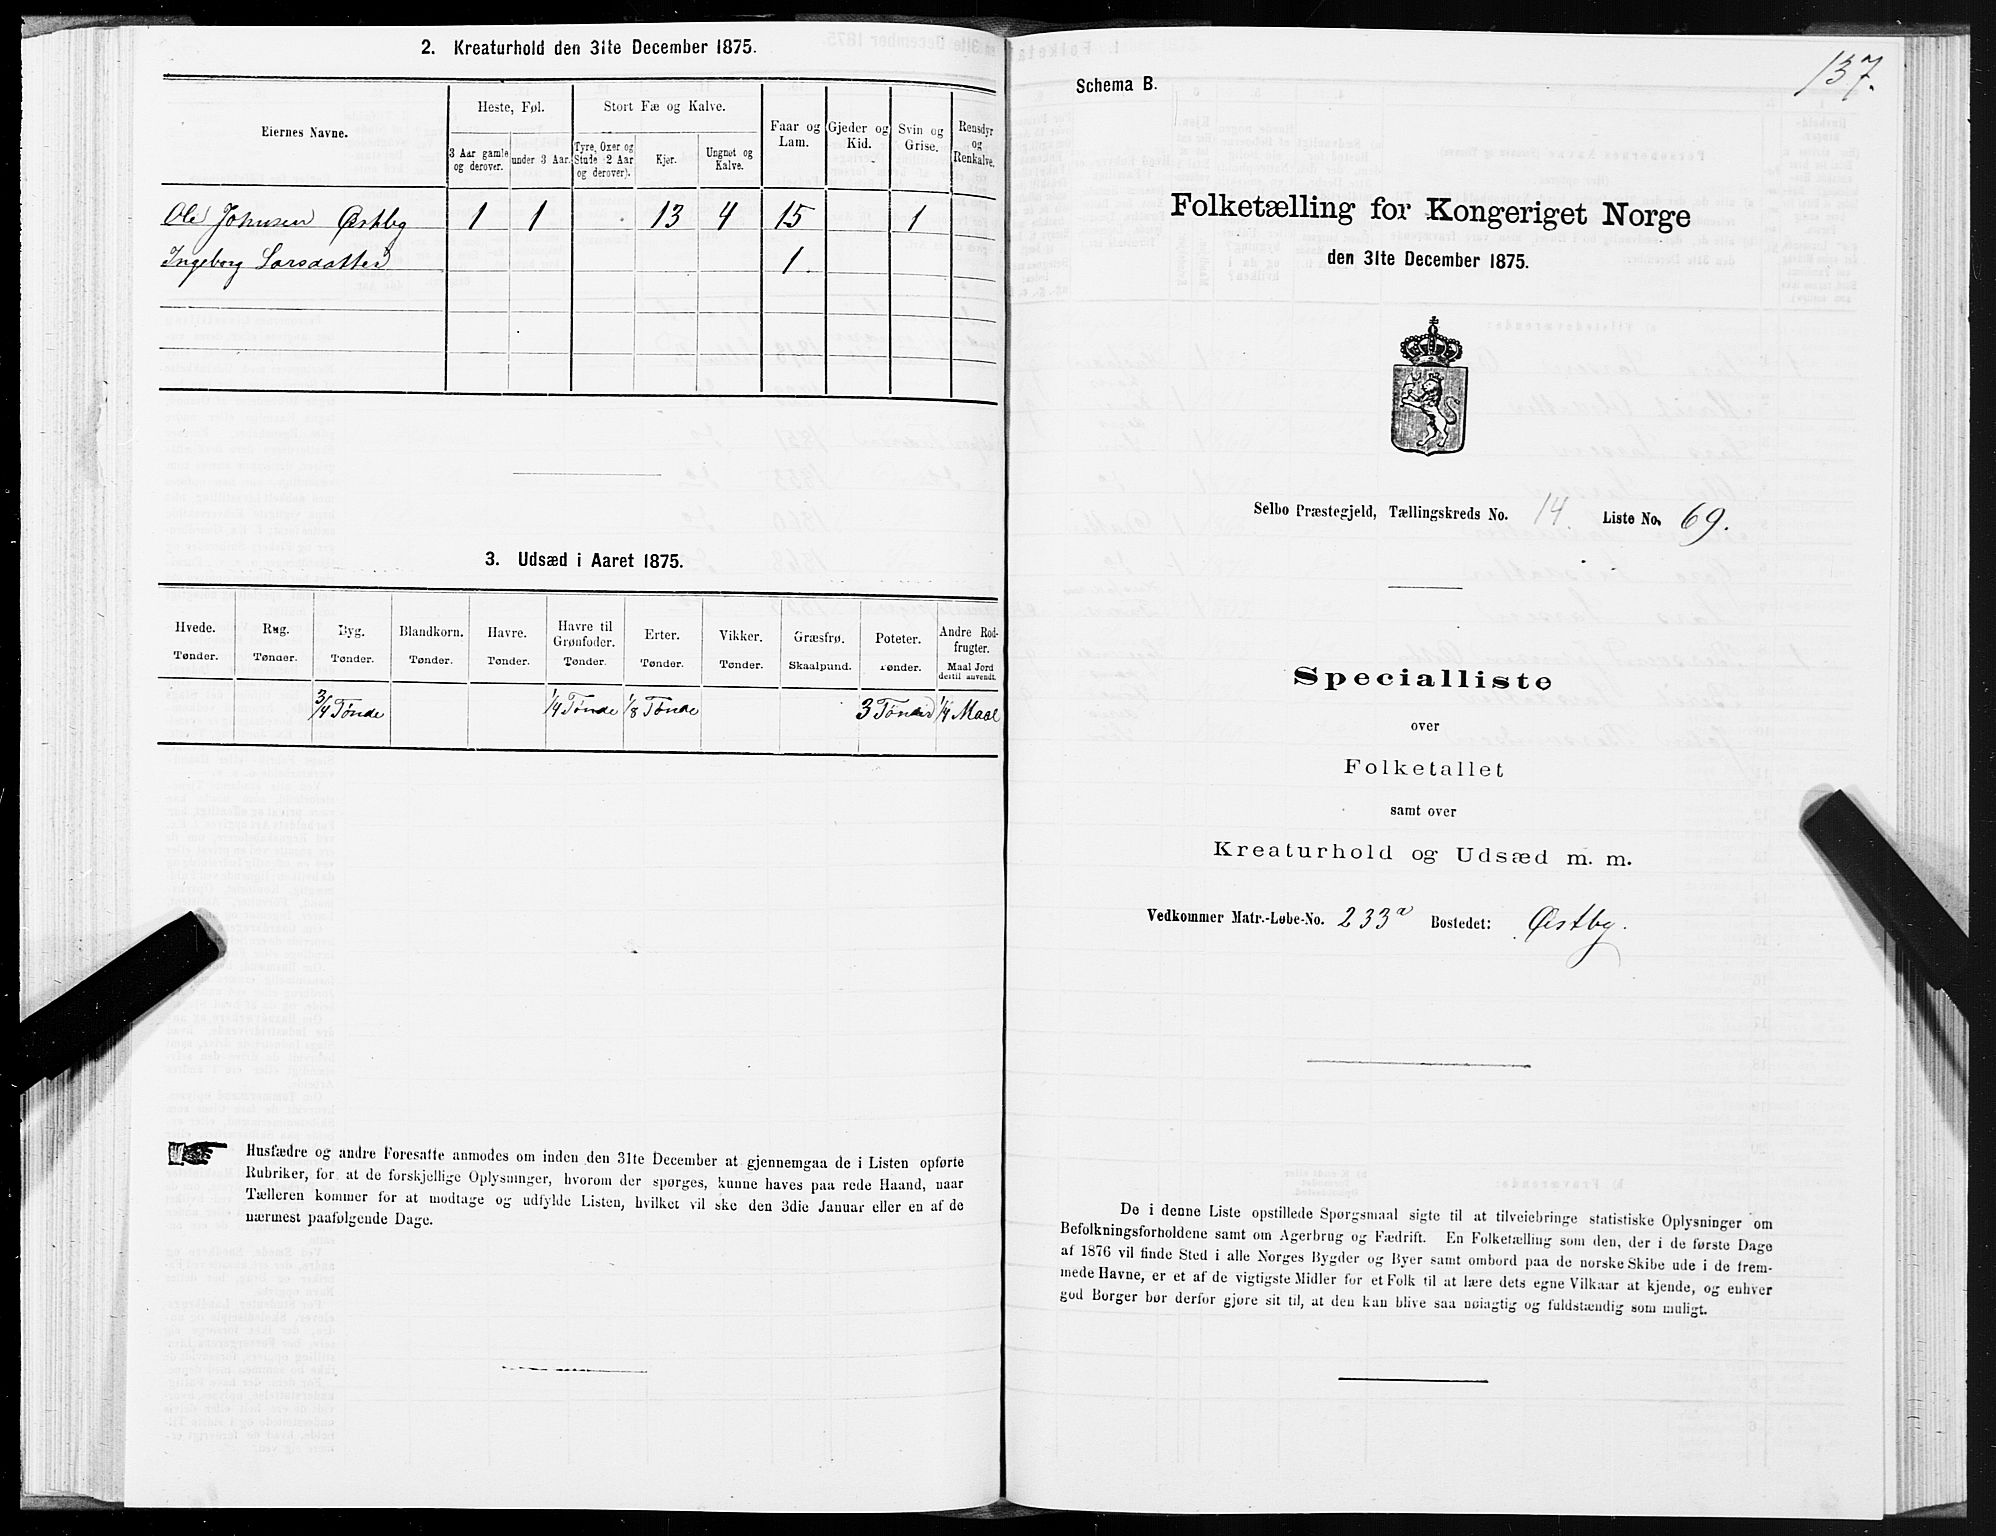 2. Kreaturhold den 31te December 1875.
Eiernes Navne.
Heste, Føl.
Stort Fæ og Kalve.
Faar og Lam.
Gjeder og Kid.
Svin og Grise.
Rensdyr og Renkalve.
3 Aar gamle og derover.
under 3 Aar.
Tyre, Oxer og Stude (2 Aar og derover).
Kjør.
Ungnøt og Kalve.
Ole Johnsen Østby 1 1 13 4 15 1
Ingeborg Larsdatter 1.
3. Udsæd i Aaret 1875.
Hvede. Rug. Byg. Blandkorn. Havre. Havre til Grønfoder. Erter. Vikker. Græsfrø. Poteter. Andre Rodfrugter.
Tønder. Tønder. Tønder. Tønder. Tønder. Tønder. Tønder. Tønder. Skaalpund. Tønder. Maal Jord dertil anvendt.
3/4 Tønde 1/4 Tønde 1/8 Tønde 3 Tønder 1/4 Maal
Husfædre og andre Foresatte anmodes om inden den 31te December at gjennemgaa de i Listen opførte
Rubriker, for at de forskjellige Oplysninger, hvorom der spørges, kunne haves paa rede Haand, naar
Tælleren kommer for at modtage og udfylde Listen, hvilket vil ske den 3die Januar eller en af de
nærmest paafølgende Dage.
137.
Schema B.
Folketælling for Kongeriget Norge
den 31te December 1875.
Selbo Præstegjeld, Tællingskreds No. 14. Liste No. 69.
Specialliste
over
Folketallet
samt over
Kreaturhold og Udsæd m. m.
Vedkommer Matr.-Løbe-No. 233a Bostedet: Østby.
De i denne Liste opstillede Spørgsmaal sigte til at tilveiebringe statistiske Oplysninger om
Befolkningsforholdene samt om Agerbrug og Fædrift. En Folketælling som den, der i de første Dage
af 1876 vil finde Sted i alle Norges Bygder og Byer samt ombord paa de norske Skibe ude i de frem-
mede Havne, er et af de vigtigste Midler for et Folk til at lære dets egne Vilkaar at kjende, og enhver
god Borger bør derfor gjøre sit til, at den kan blive saa nøiagtig og fuldstændig som muligt.